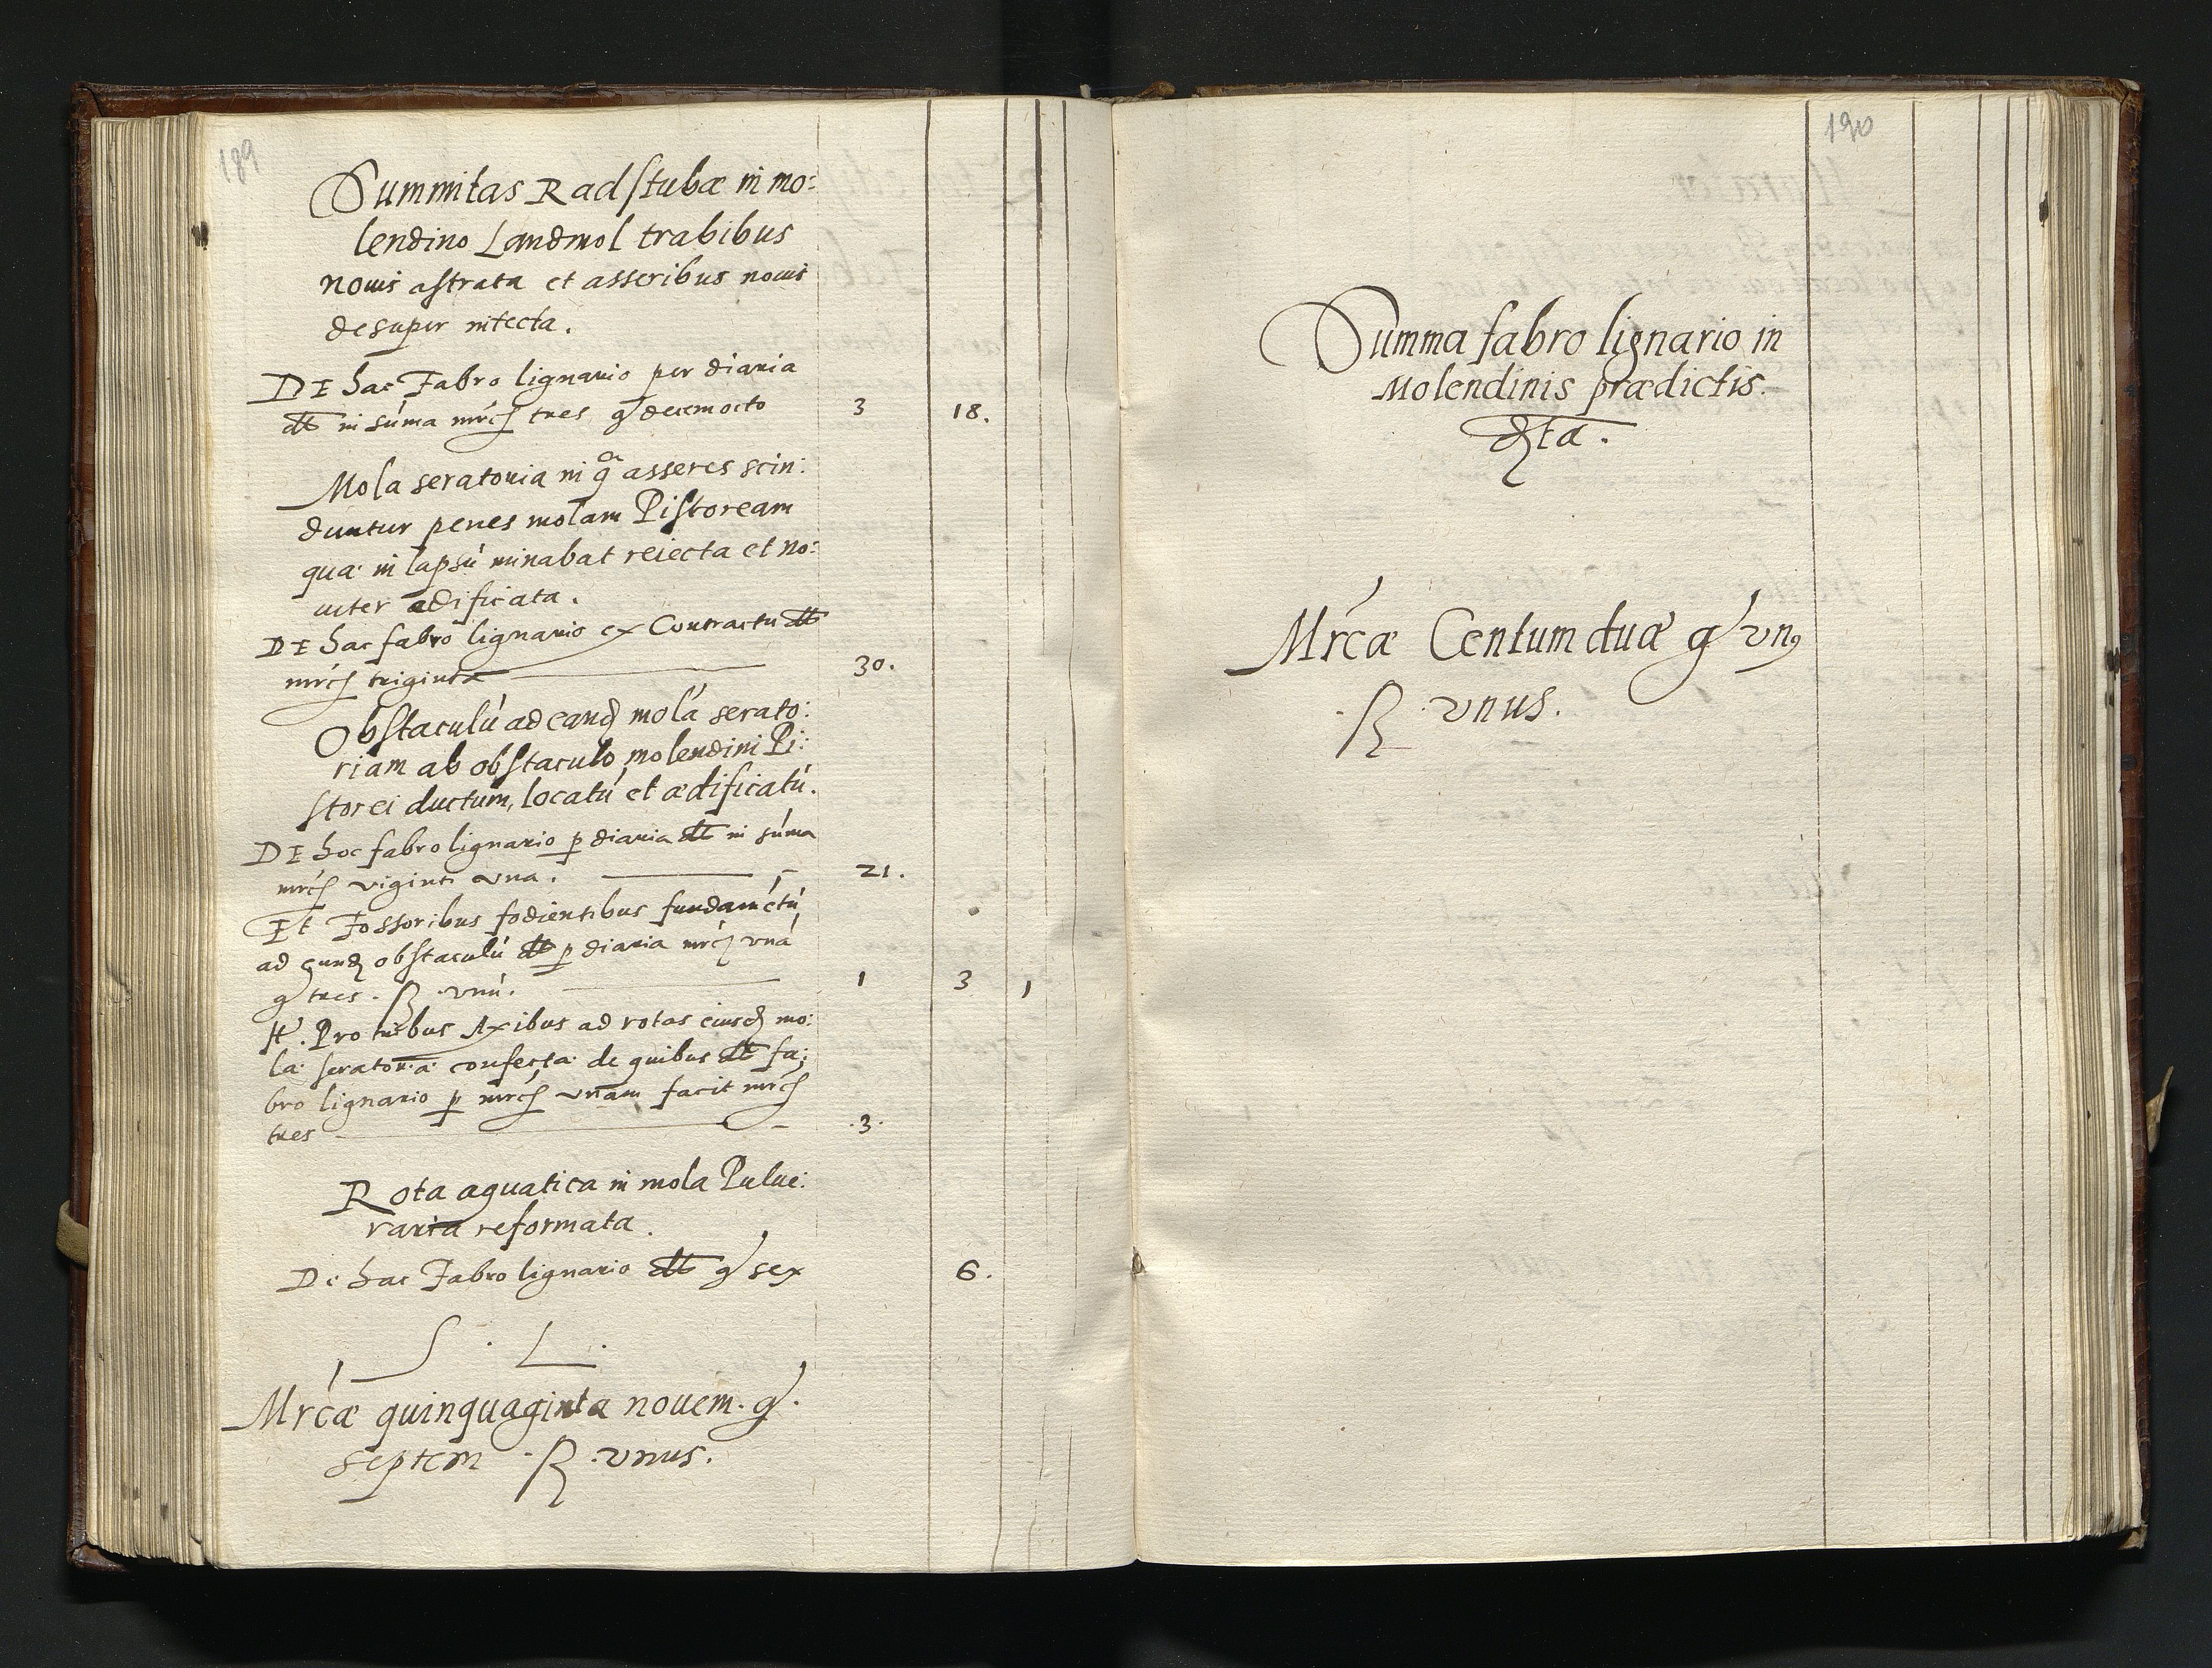 189
Summitas Radstubæ in mo:
lendino Landmol trabibus
nouis astrata et asseribus nouis
desuper intecta.
De hac Fabro lignario per diaria
dt in súma mrcs tres g decemocto 3 18.
Mola seratoria in qa asseres scin:
duntur penes molam Pistoream
quæ in lapsú minabat reiecta et no:
uiter ædificata.
De hac fabro lignario ex Contractu dt
mrcs triginta 30.
Obstaculú ad eand molá serato:
riam ab obstaculo molendini Pi:
storei ductum, locatú et ædificatú.
De hoc fabro lignario p diaria dt in súma
mrcs viginti una. 21.
Et Fossoribus fodientibus fundamétú
ad eund obstaculú dt p diaria mrcs vná
g tres. ß vnú. 1 3 1
It. Pro tribus Axibus ad rotas eiusd mo:
læ seratoriæ confecta de quibus dt fa:
bro lignario p mrcs vnam facit mrcs
tres .3.
Rota aquatica in mola Pulue:
raria reformata.
De hac Fabro lignario dt g sex 6.
S. L.
Mrcæ quinquaginta nouem. g.
septem ß vnus.
190
Summa fabro lignario in
Molendinis prædictis.
dta.
Mrcæ Centum duæ g vn9
ß vnus.